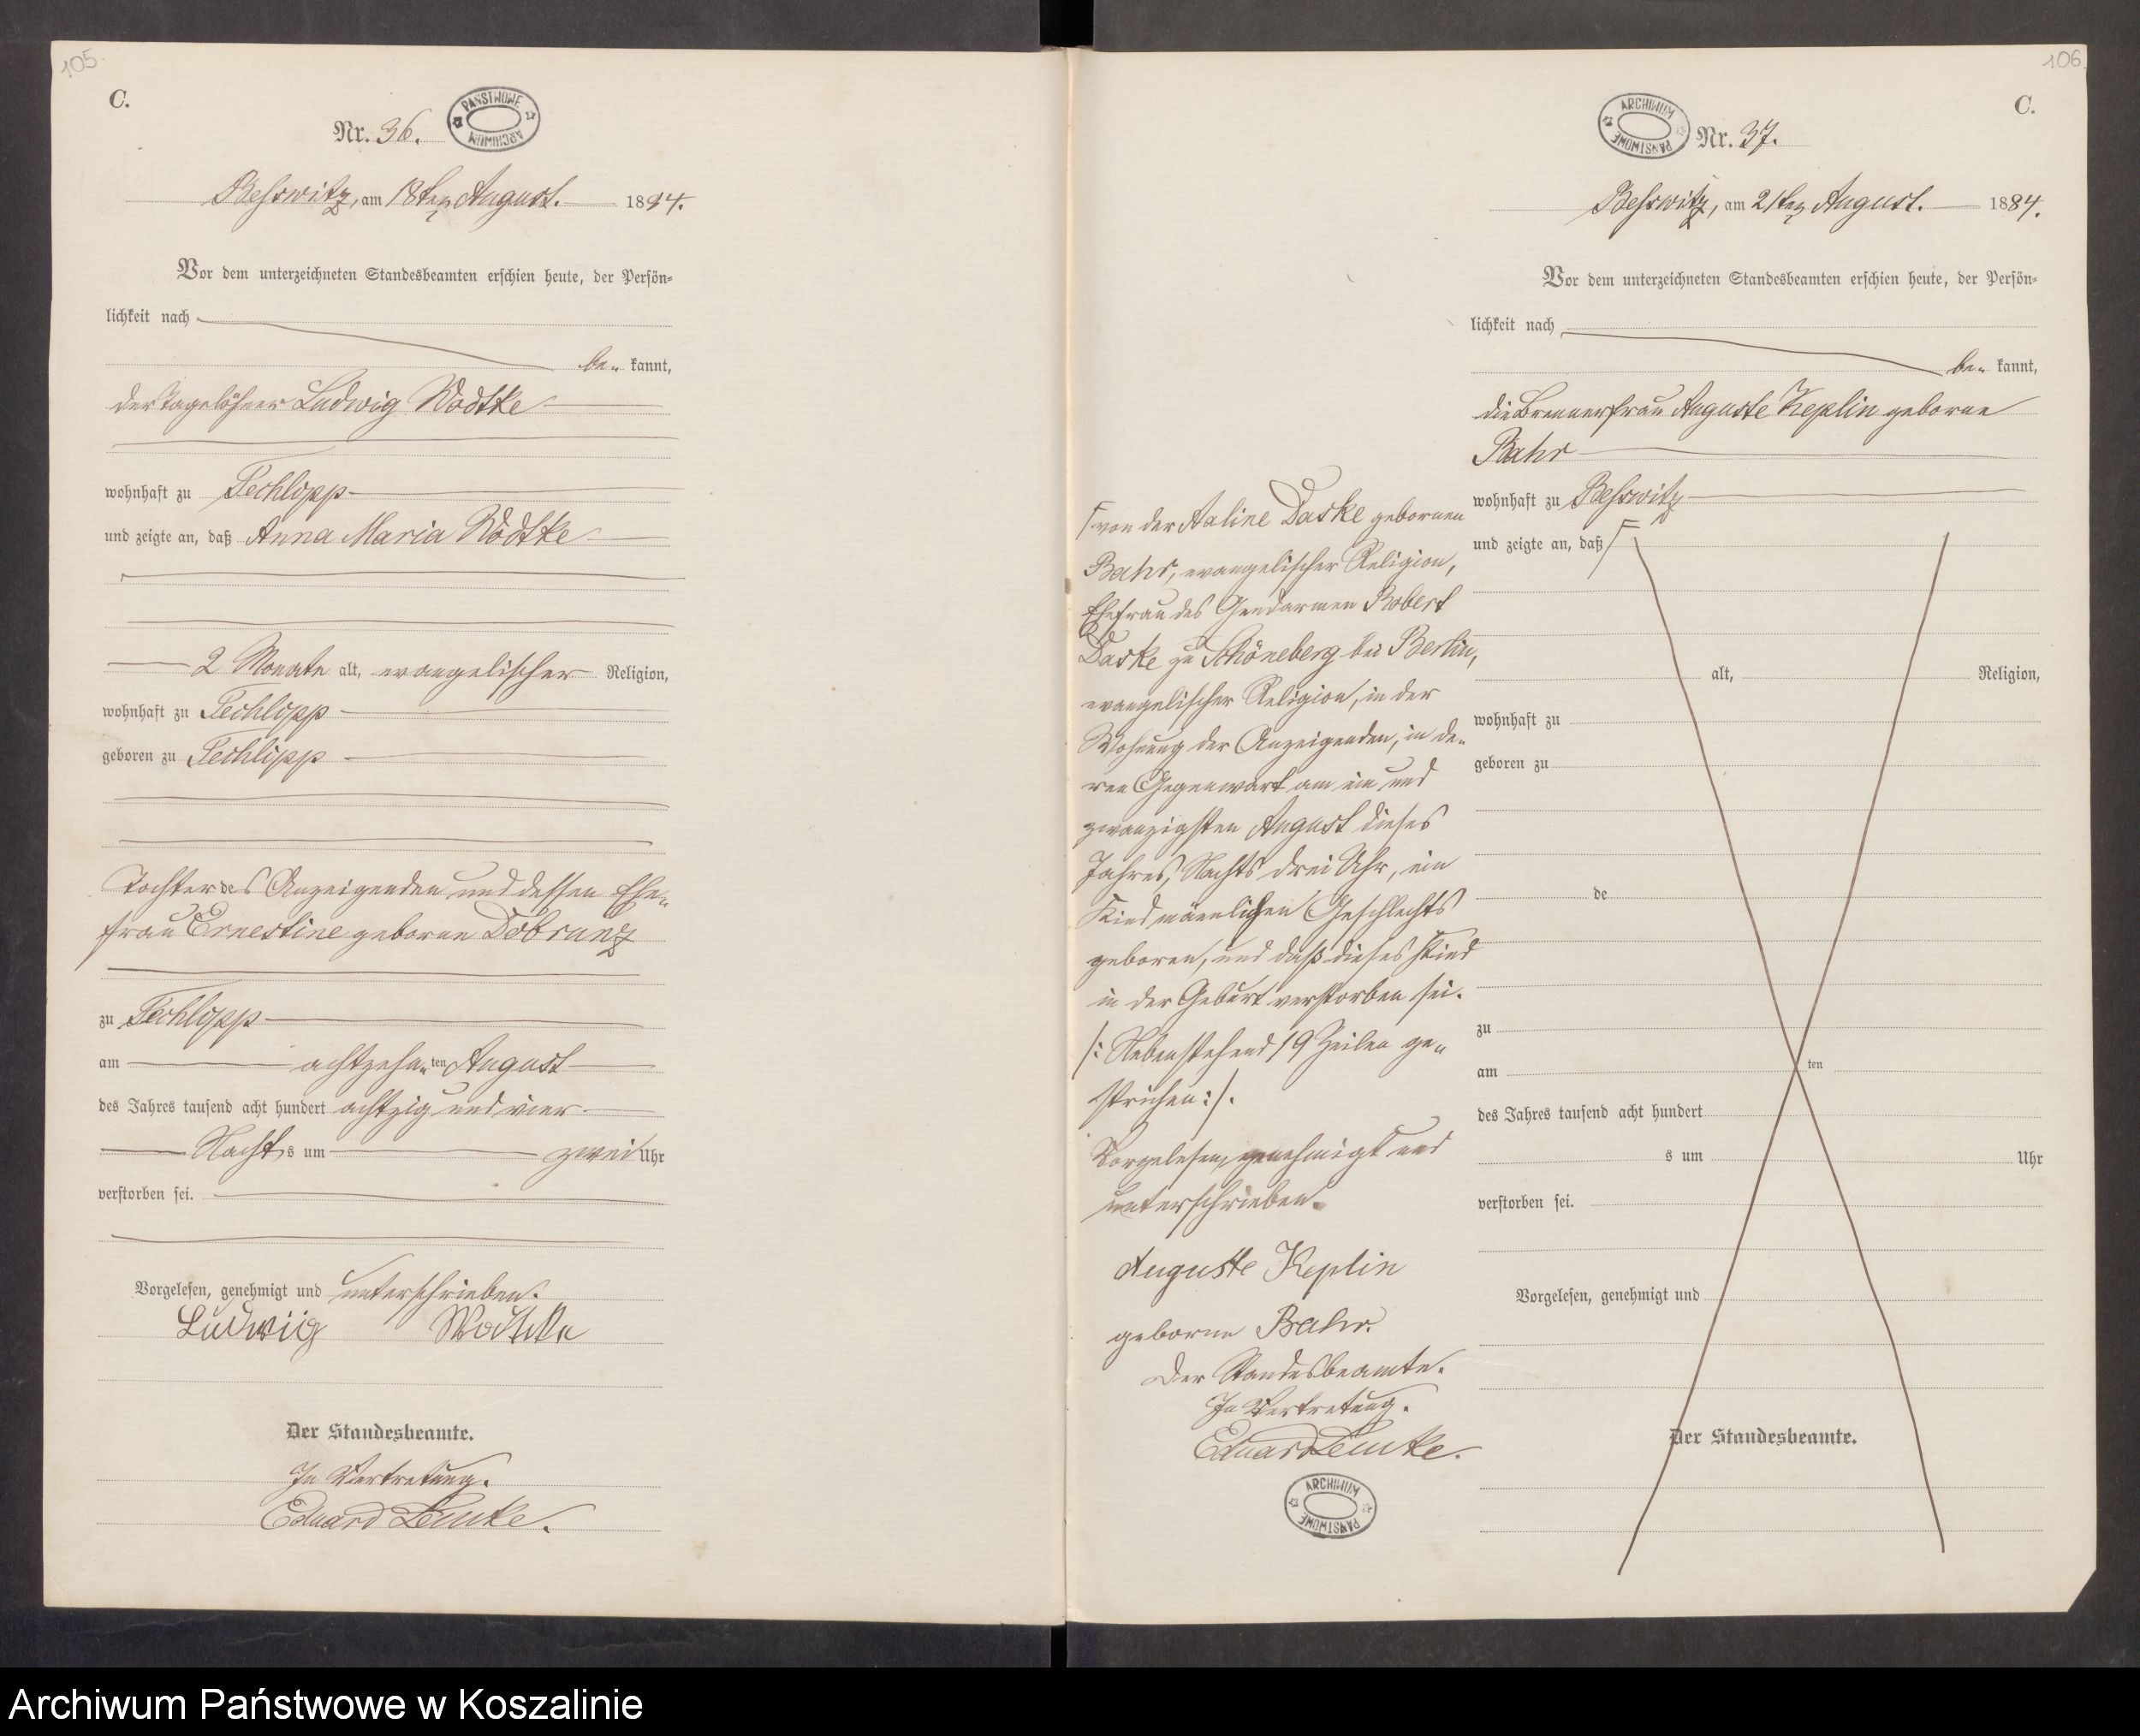 105.
C.
Nr. 36.
PAŃSTWOWE ARCHIWUM
Beßwitz, am 18ten August. 1884.
Vor dem unterzeichneten Standesbeamten erschien heute, der Persön-
lichkeit nach
be- kannt,
der Tagelöhner Ludwig Wodtke
wohnhaft zu Techlipp
und zeigte an, daß Anna Maria Wodtke
2 Monate alt, evangelischer Religion,
wohnhaft zu Techlipp
geboren zu Techlipp
Tochter des Anzeigenden und dessen Ehe-
frau Ernestine geborne Dobrunz
zu Techlipp
am achtzehn-ten August
des Jahres tausend acht hundert achtzig und vier
Nachts um zwei Uhr
verstorben sei.
Vorgelesen, genehmigt und unterschrieben.
Ludwiig Wodtke
Der Standesbeamte.
In Vertretung.
Eduard Lemke.
106.
C.
ARCHIWUM PAŃSTWOWE
Nr. 37.
Beßwitz, am 21ten August. 1884.
Vor dem unterzeichneten Standesbeamten erschien heute, der Persön-
lichkeit nach
be- kannt,
die Brennerfrau Auguste Keplin geborne
Bahr
wohnhaft zu Beßwitz
und zeigte an, daß
von der Aaline Daske gebornen
Bahr, evangelischer Religion,
Ehefrau des Gendarmen Robert
Daske zu Schöneberg bei Berlin,
evangelischer Religion, in der
Wohnung der Anzeigenden, in de-
ren Gegenwart am ein und
zwanzigsten August dieses
Jahres, Nachts drei Uhr, ein
Kind männlichen Geschlechts
geboren, und daß dieses Kind
in der Geburt verstorben sei.
/: Nebenstehend 19 Zeilen ge-
strichen :/.
Vorgelesen, genehmigt und
unterschrieben.
Auguste Keplin
geborne Bahr.
Der Standesbeamte.
In Vertretung.
Eduard Lemke.
ARCHIWUM PAŃSTWOWE
alt, Religion,
wohnhaft zu
geboren zu
de
zu
am ten
des Jahres tausend acht hundert
s um Uhr
verstorben sei.
Vorgelesen, genehmigt und
Der Standesbeamte.
Archiwum Państwowe w Koszalinie